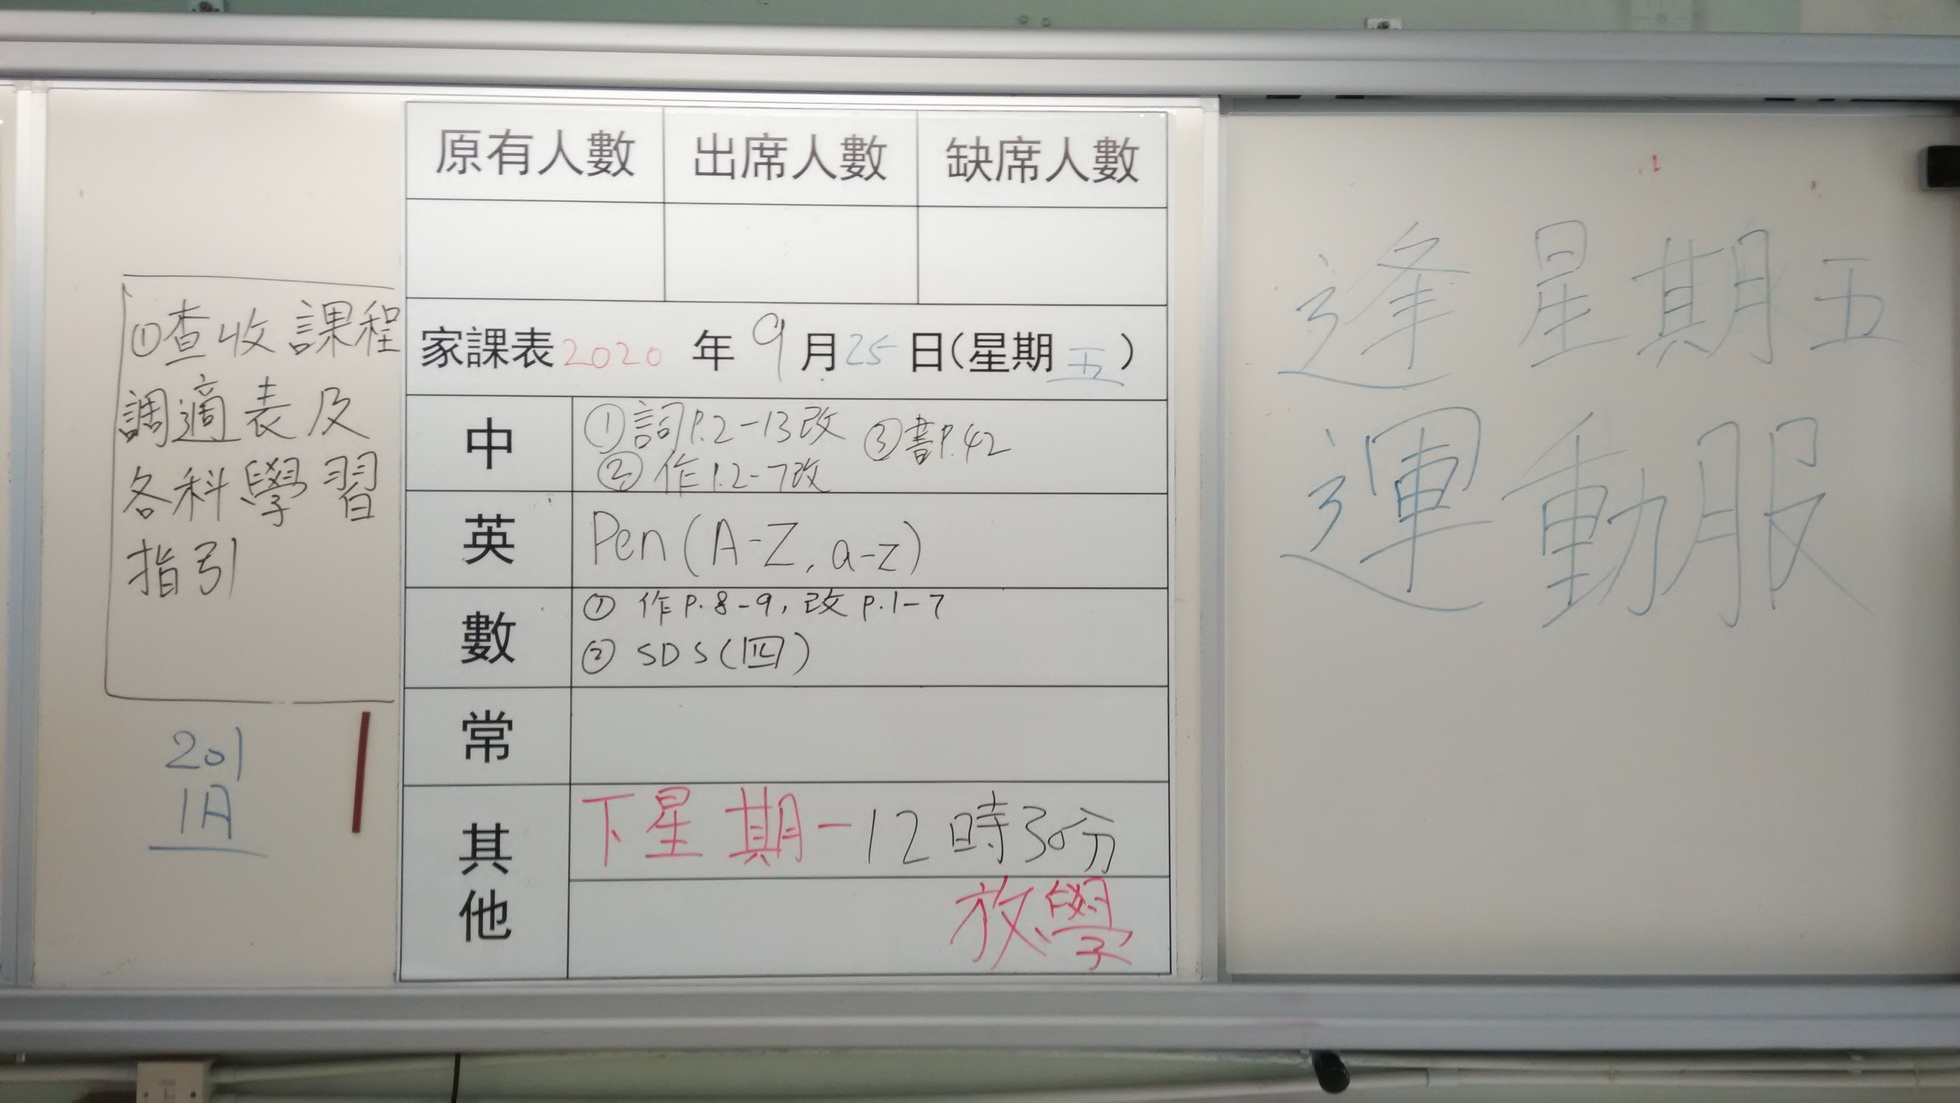 ①查收課程
調適表及
各科學習
指引
201
1A
原有人數 出席人數 缺席人數
家課表2020 年 9 月 25 日(星期 五 )
中 ①詞P.2-13改 ③書P.42
②作1.2-7改
英 Pen (A-Z, a-z)
數 ① 作P.8-9, 改P.1-7
② SDS(四)
常
其他 下星期一12時30分
放學
逢星期五
運動服